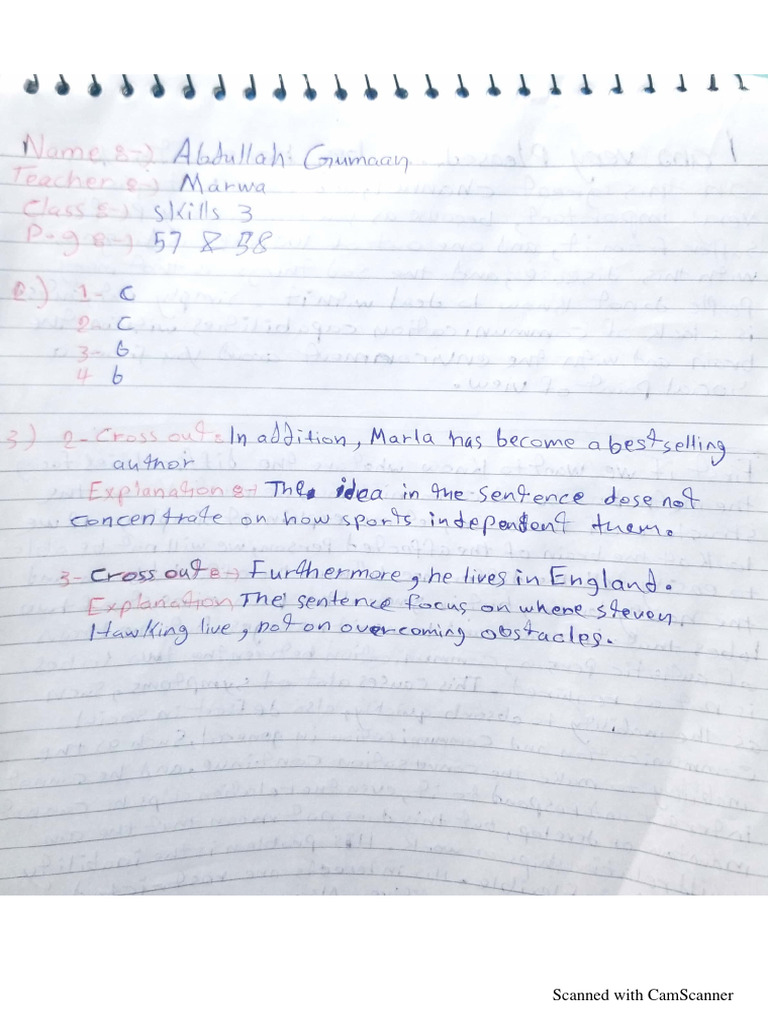 Name :-) Abdullah Gumaan
Teacher :-) Marwa
Class :-) skills 3
P-g :-) 57 & 58
2.) 1- C
2- C
3- b
4 b
3) 2- Cross out: In addition, Marla has become a best selling
author
Explanation :- The idea in the sentence dose not
concentrate on how sports independent them.
3- Cross out :-) Furthermore, he lives in England.
Explanation The sentence focus on where steven
Hawking live, not on overcoming obstacles.
Scanned with CamScanner